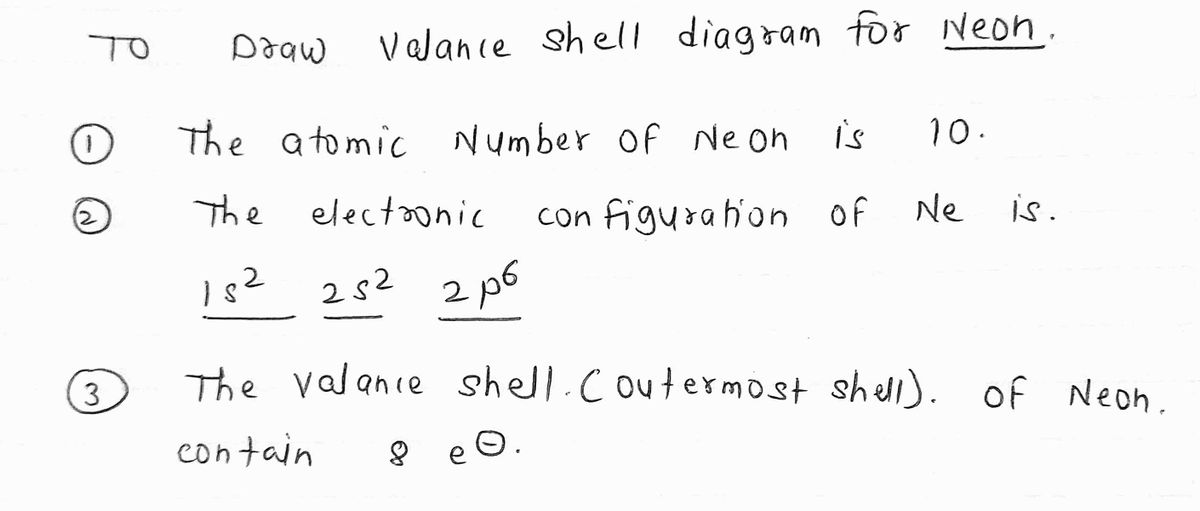 TO Draw Valance shell diagram for Neon.
① The atomic Number of Neon is 10.
② The electronic configuration of Ne is.
1s² 2s² 2p⁶
③ The valance shell. (outermost shell). of Neon.
contain 8 e⊖.